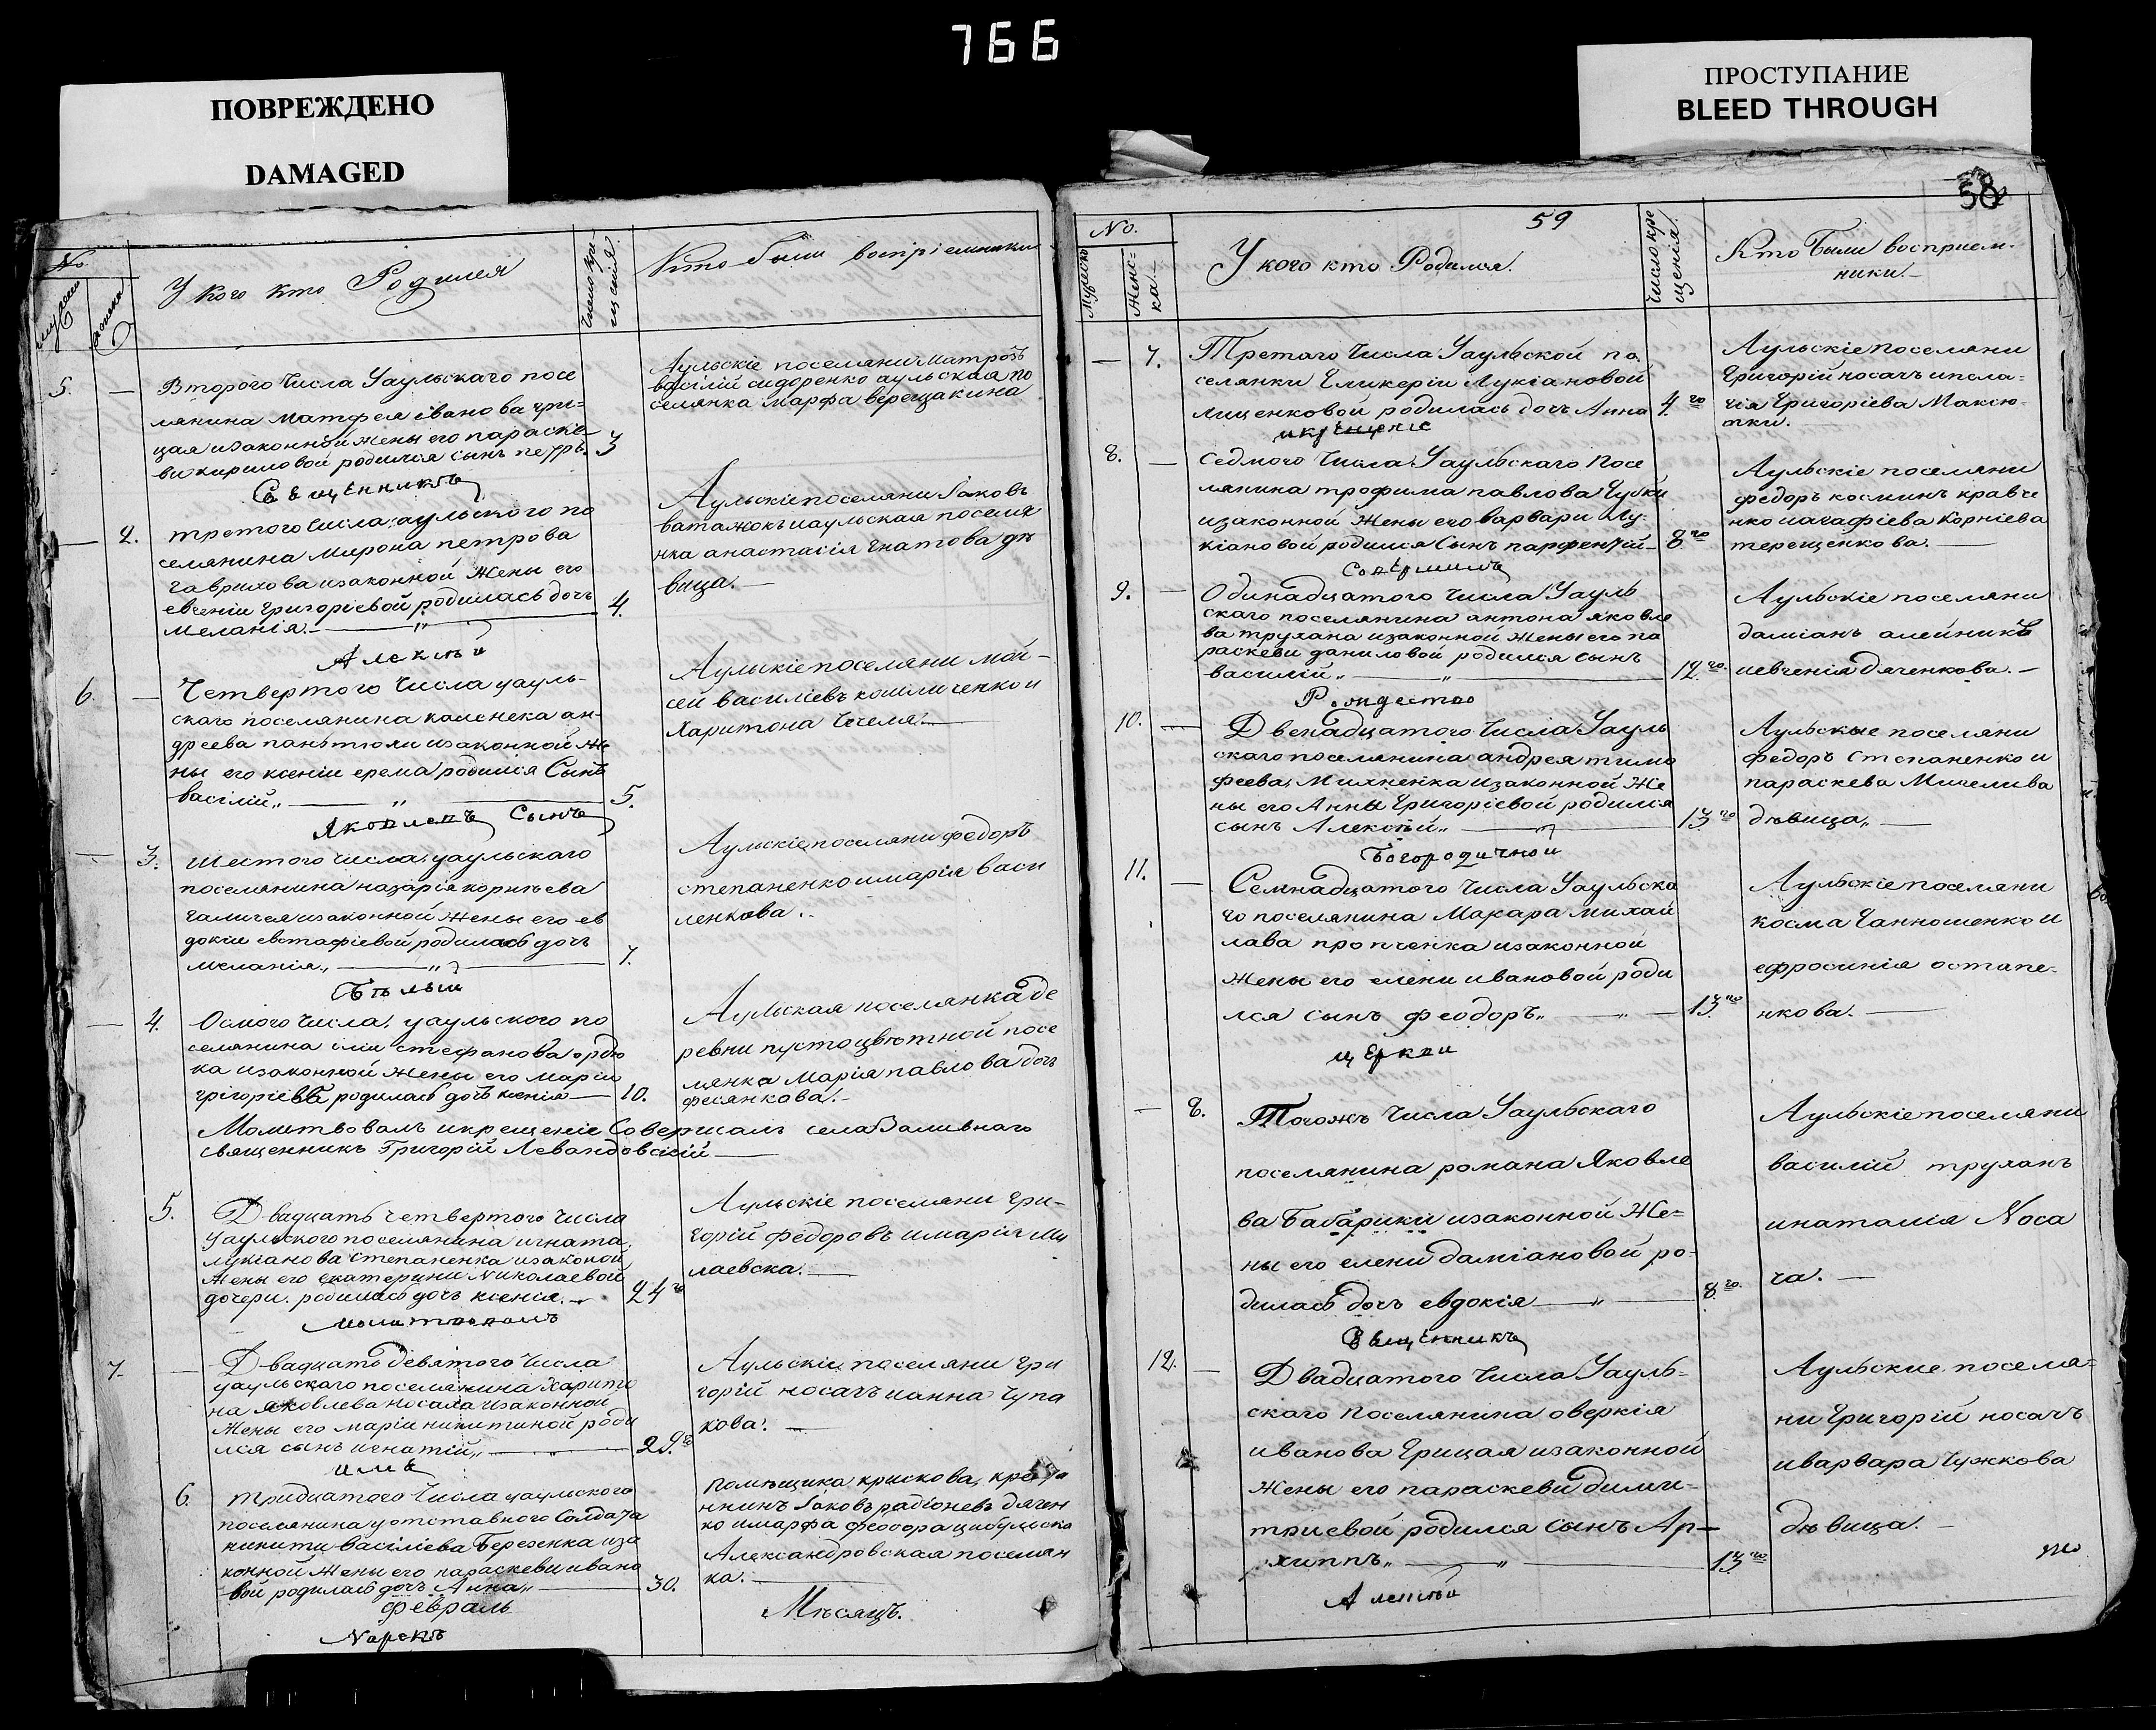 766
ПОВРЕЖДЕНО
DAMAGED
ПРОСТУПАНИЕ
BLEED THROUGH
No.
У кого кто Родился
Кто были воспрiемники
5.
Второго Числа Уаульскаго посе
лянина матфея iванова гри=
цая изаконной жены его параске
ви кириловой родился сынъ петръ.
3
Аульскiе поселяни матрозъ
васiлiй сидоренко аульская по
селянка марфа верещакина
Священникъ
2.
третого Числа, аульского по
селянина мирона петрова
гаврилова изаконной жены его
евгенiи григорiевой родилась дочь
меланiя.
4.
Аульскiе поселяни Iаковъ
ватажокъ иаульская поселя
нка анастасiя гнатова дѣ
вица.
Алексѣй
6.
Четвертого Числа уауль-
скаго поселянина каленека ан-
дреева панътюли изаконной же
ны его ксенiи ерема родился Сынъ
васiлiй„
5.
Аульскiе поселяни мой-
сей василiевъ кошличенко и
Харитона Чечеля.
Яковлевъ Сынъ
3.
Шестого Числа, уаульскаго
поселянина назарiя корнѣева
галичея изаконной жены его ев
докiи евстафiевой родилась дочь
меланiя„
7.
Аульскiе поселяни федоръ
степаненко имарiя васи
ленкова.
Бѣлый
4.
Осмого Числа, уаульского по
селянина iлiи стефанова ордю
ка изаконной жены его марiи
григорiева родилась дочь ксенiя
10.
Аульская поселянка де
ревни пустоцвѣтной посе
лянка Марiя павлова дочь
фесянкова.
Молитвовалъ икрещенiе Совершалъ села Заливнаго
священникъ Григорiй Левандовскiй
5.
Двадцать четвертого Числа
Уаульского поселянина игната
лукiанова степаненка изаконой
жены его екатерини Николаевой
дочери. родилась дочь ксенiя.
24го
Аульскiе поселяни Гри-
горiй федоровъ имарiя Ми
лаевска.
молитвовалъ
7.
Двадцать девятого Числа
уаульскаго поселянина Харито
на яковлева носача изаконной
жены его марiи никитиной роди
лся сынъ игнатiй„
29го
Аульскiи поселяни гри
горiй носачъ ианна Чупа
кова.
имъ
6.
тридцатого Числа уаульского
поселянина уотставного Солдата
никиты Васiлiева Березенка иза
конной жены его параскеви ивано
вой родилась дочь Анна„
30.
Помѣщика крискова, крестя
нкинъ Iаковъ радiоневъ дячен
ко имарфа феодора цибульска
Александровская поселян
ка.
февраль
Мѣсяцъ.
58
59
No.
Мужеска
Женс=
ка.
У кого кто Родился.
Число кре
щенiя.
Кто Были восприем-
ники.
7.
Третаго Числа Уаульской по
селянки Гликерiи Лукiановой
лищенковой родилась дочь Анна
4го
Аульскiе поселяни
Григорiй носачъ ипела=
гiя Григорiева Максю-
тки.
икрещенiе
8.
Седмого Числа, Уаульскаго Посе
лянина трофима павлова Чубки
изаконной жены его варвари Лу-
кiановой родился Сынъ парфентiй
8го
Аульскiе поселяни
федоръ косминъ кравче
нко иагафiева Корнiева
терещенкова.
Совершилъ
9.
Одинадцатого Числа Уауль
скаго поселянина антона яковле
ва трухана изаконной жены его па
раскеви даниловой родился сынъ
василiй„
12го
Аульскiе поселяни
дамiанъ алейникъ
иевгенiя дяченкова.
Рождество
10.
Двенадцатого Числа Уауль
скаго поселянина андрея тимо
феева, Миляненка изаконной Же
ны его Анны Григорiевой родился
сынъ Алексѣй„
13го
Аульские поселяни
федоръ Степаненко и
параскева Мигелива
дѣвица„
Богородичной
11.
Семнадцатого Числа Уаульска
го поселянина Макара михай
лава пропченка изаконной
жены его елени ивановой роди
лся сынъ феодоръ„
13го
Аульскiе поселяни
косма Ганношенко и
ефросинiя остапе-
нкова.
церкви
8.
Тогожъ Числа Уаульскаго
поселянина романа Яковле
ва Бабарики изаконной Же=
ны его елени дамiановой ро-
дилась дочь евдокiя
8го
Аульскiе поселяни
василiй труханъ
инаталiя Носа
ча.
Священникъ
12.
Двадцатого Числа Уауль-
скаго поселянина оверкiя
иванова Грицая изаконной
жены его параскеви дими-
триевой родился сынъ Ар-
хиппъ„
13го
Аульские поселя-
ни Григорiй носачъ
иварвара Чужкова
дѣвица.
Алексѣй